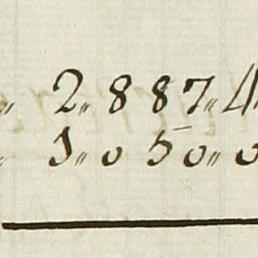 „ 2„ 8 8 7„ 4„
„ 1„ 0 5 0„ 0